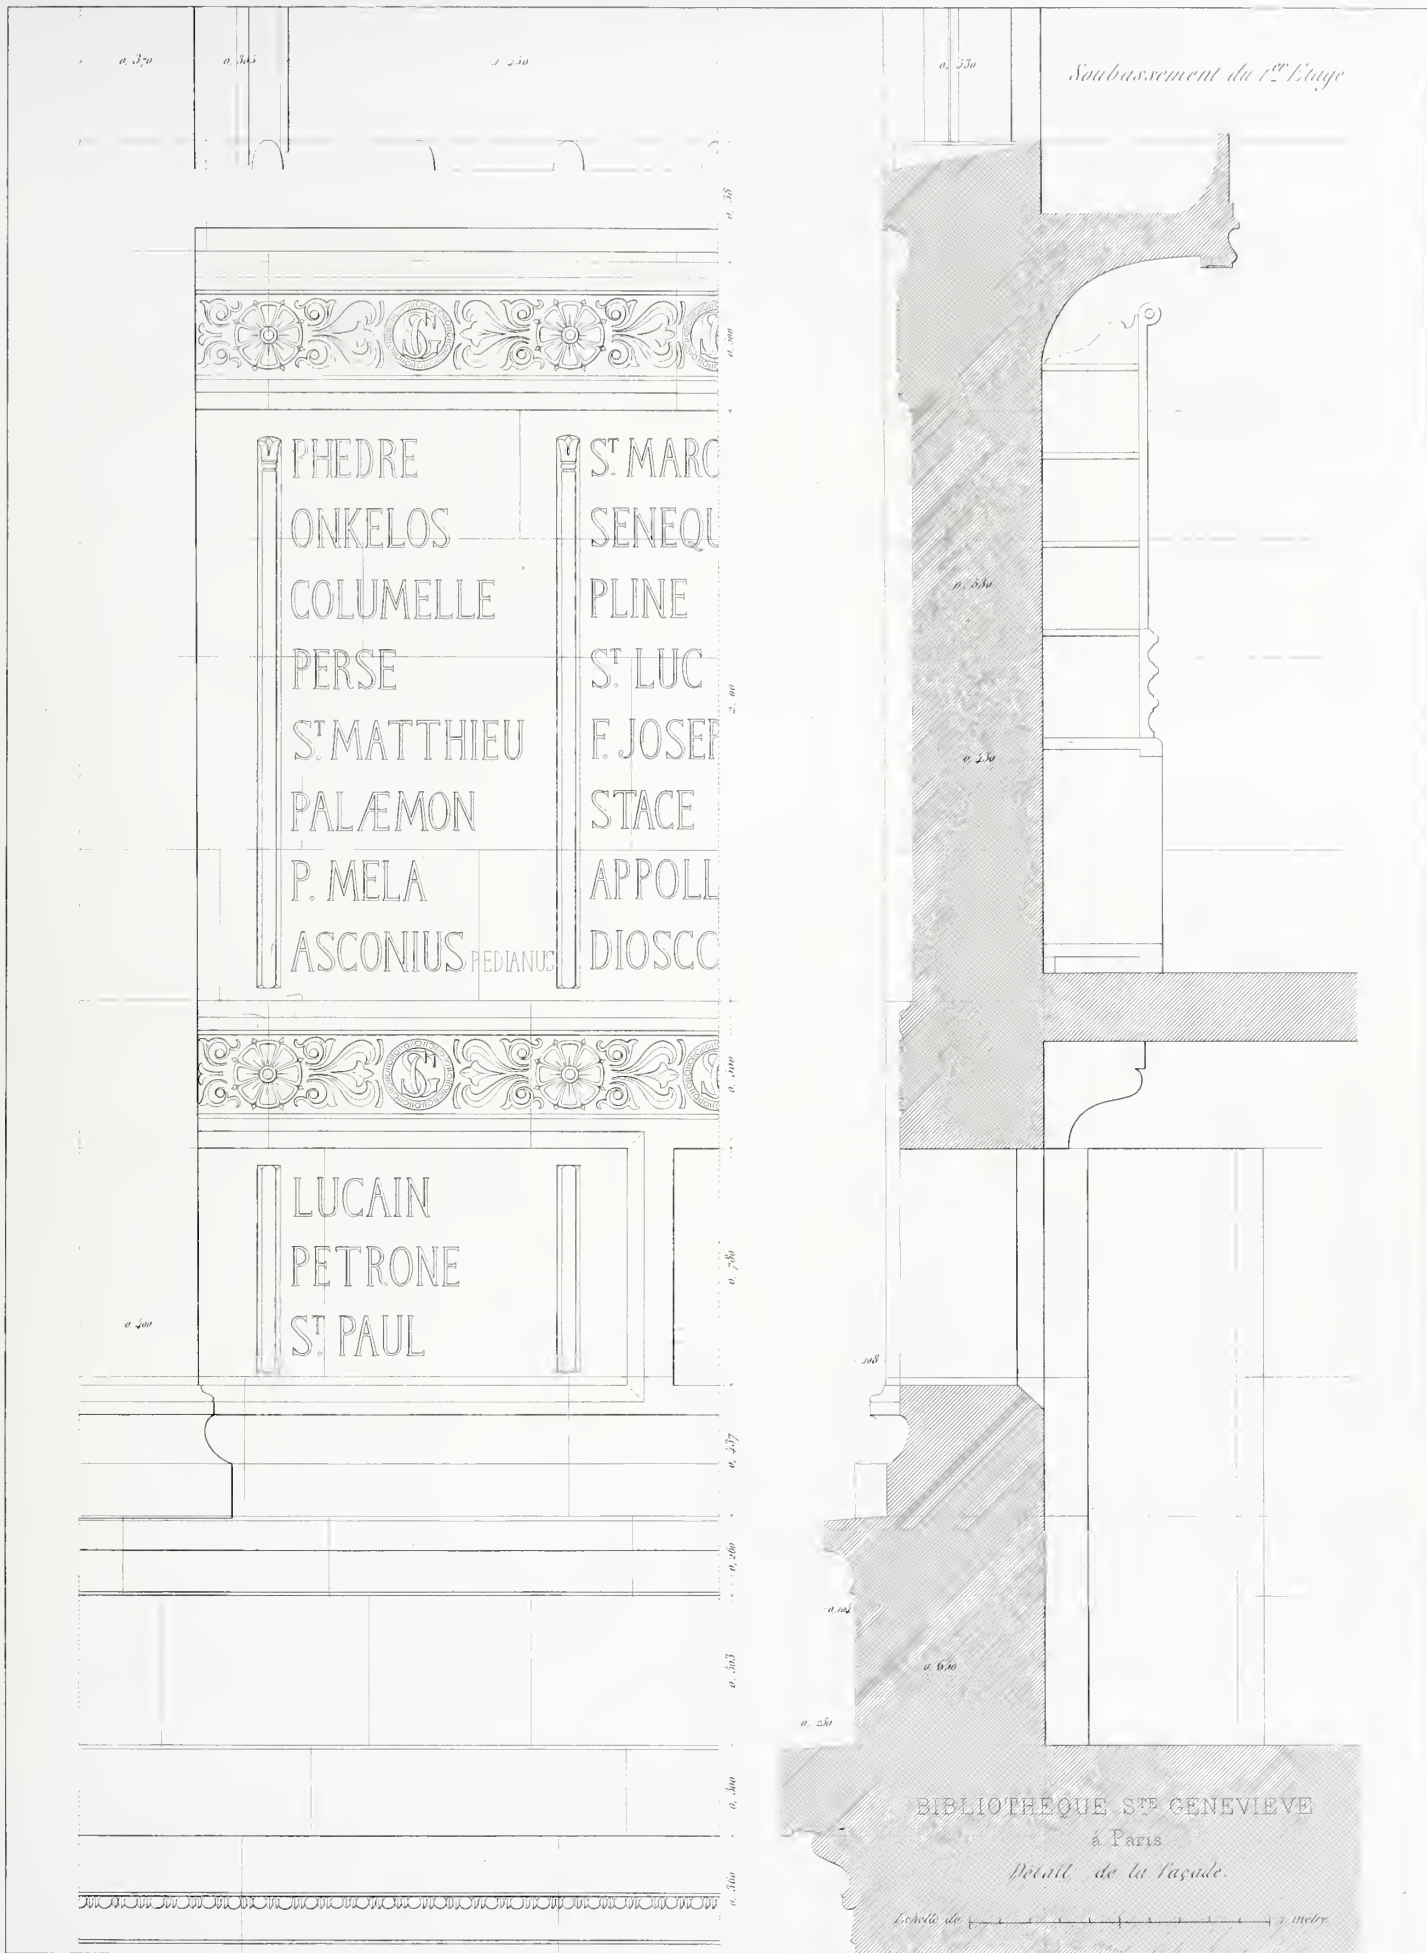 0,370
Soubassement du 1er Etage
PHEDRE
ONKELOS
COLUMELLE
PERSE
ST. MATTHIEU
PALÆMON
P. MELA
ASCONIUS PEDIANUS
ST. MARC
SENEQU
PLINE
ST. LUC
F. JOSEP
STACE
APPOLL
DIOSCO
SG
SG
LUCAIN
PETRONE
ST. PAUL
2.00
0,780
0,437
0,260
0,300
0,360
0,650
0,250
BIBLIOTHEQUE STE GENEVIEVE
à Paris
Détail de la façade.
Echelle de 1 metre